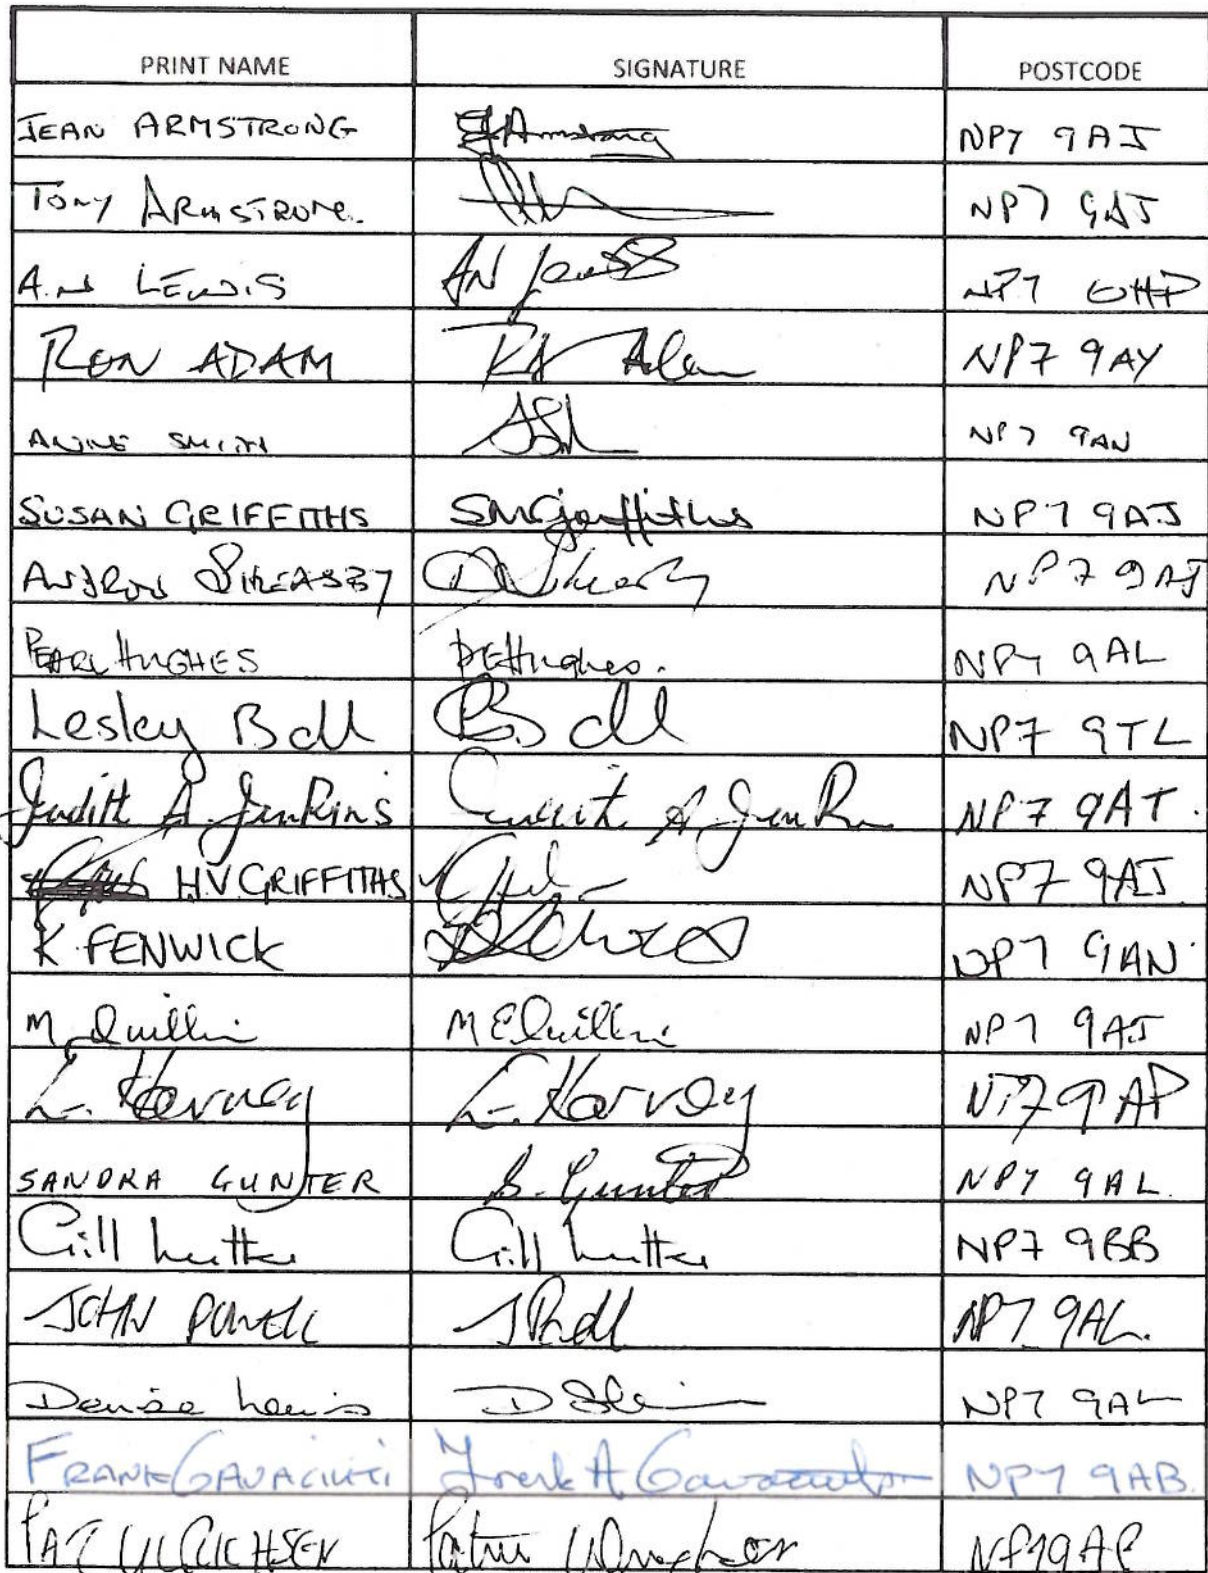 PRINT NAME SIGNATURE POSTCODE
JEAN ARMSTRONG EJ Armstrong NP7 9AJ
TONY ARMSTRONG. NP7 9AJ
A.N LEWIS AN Lewis NP7 0HP
RON ADAM NP7 9AY
ANNE SMITH NP7 9AN
SUSAN GRIFFITHS SM Griffiths NP7 9AJ
ANDREW SHEASBY NP7 9AJ
PEARL HUGHES PE Hughes. NP7 9AL
Lesley Ball Ball NP7 9TL
Judith A. Jenkins Judith A Jenkins NP7 9AT.
H.V GRIFFITHS NP7 9AJ
K FENWICK NP7 9AN
M Quillin M E Quillin NP7 9AJ
L. Harvey L. Harvey NP7 9AP
SANDRA GUNTER S. Gunter NP7 9AL
Gill Gill NP7 9BB
JOHN POWELL NP7 9AL.
Denise Lewis NP7 9AL
FRANK Frank A NP7 9AB.
PAT ULRICHSEN NP7 9AP